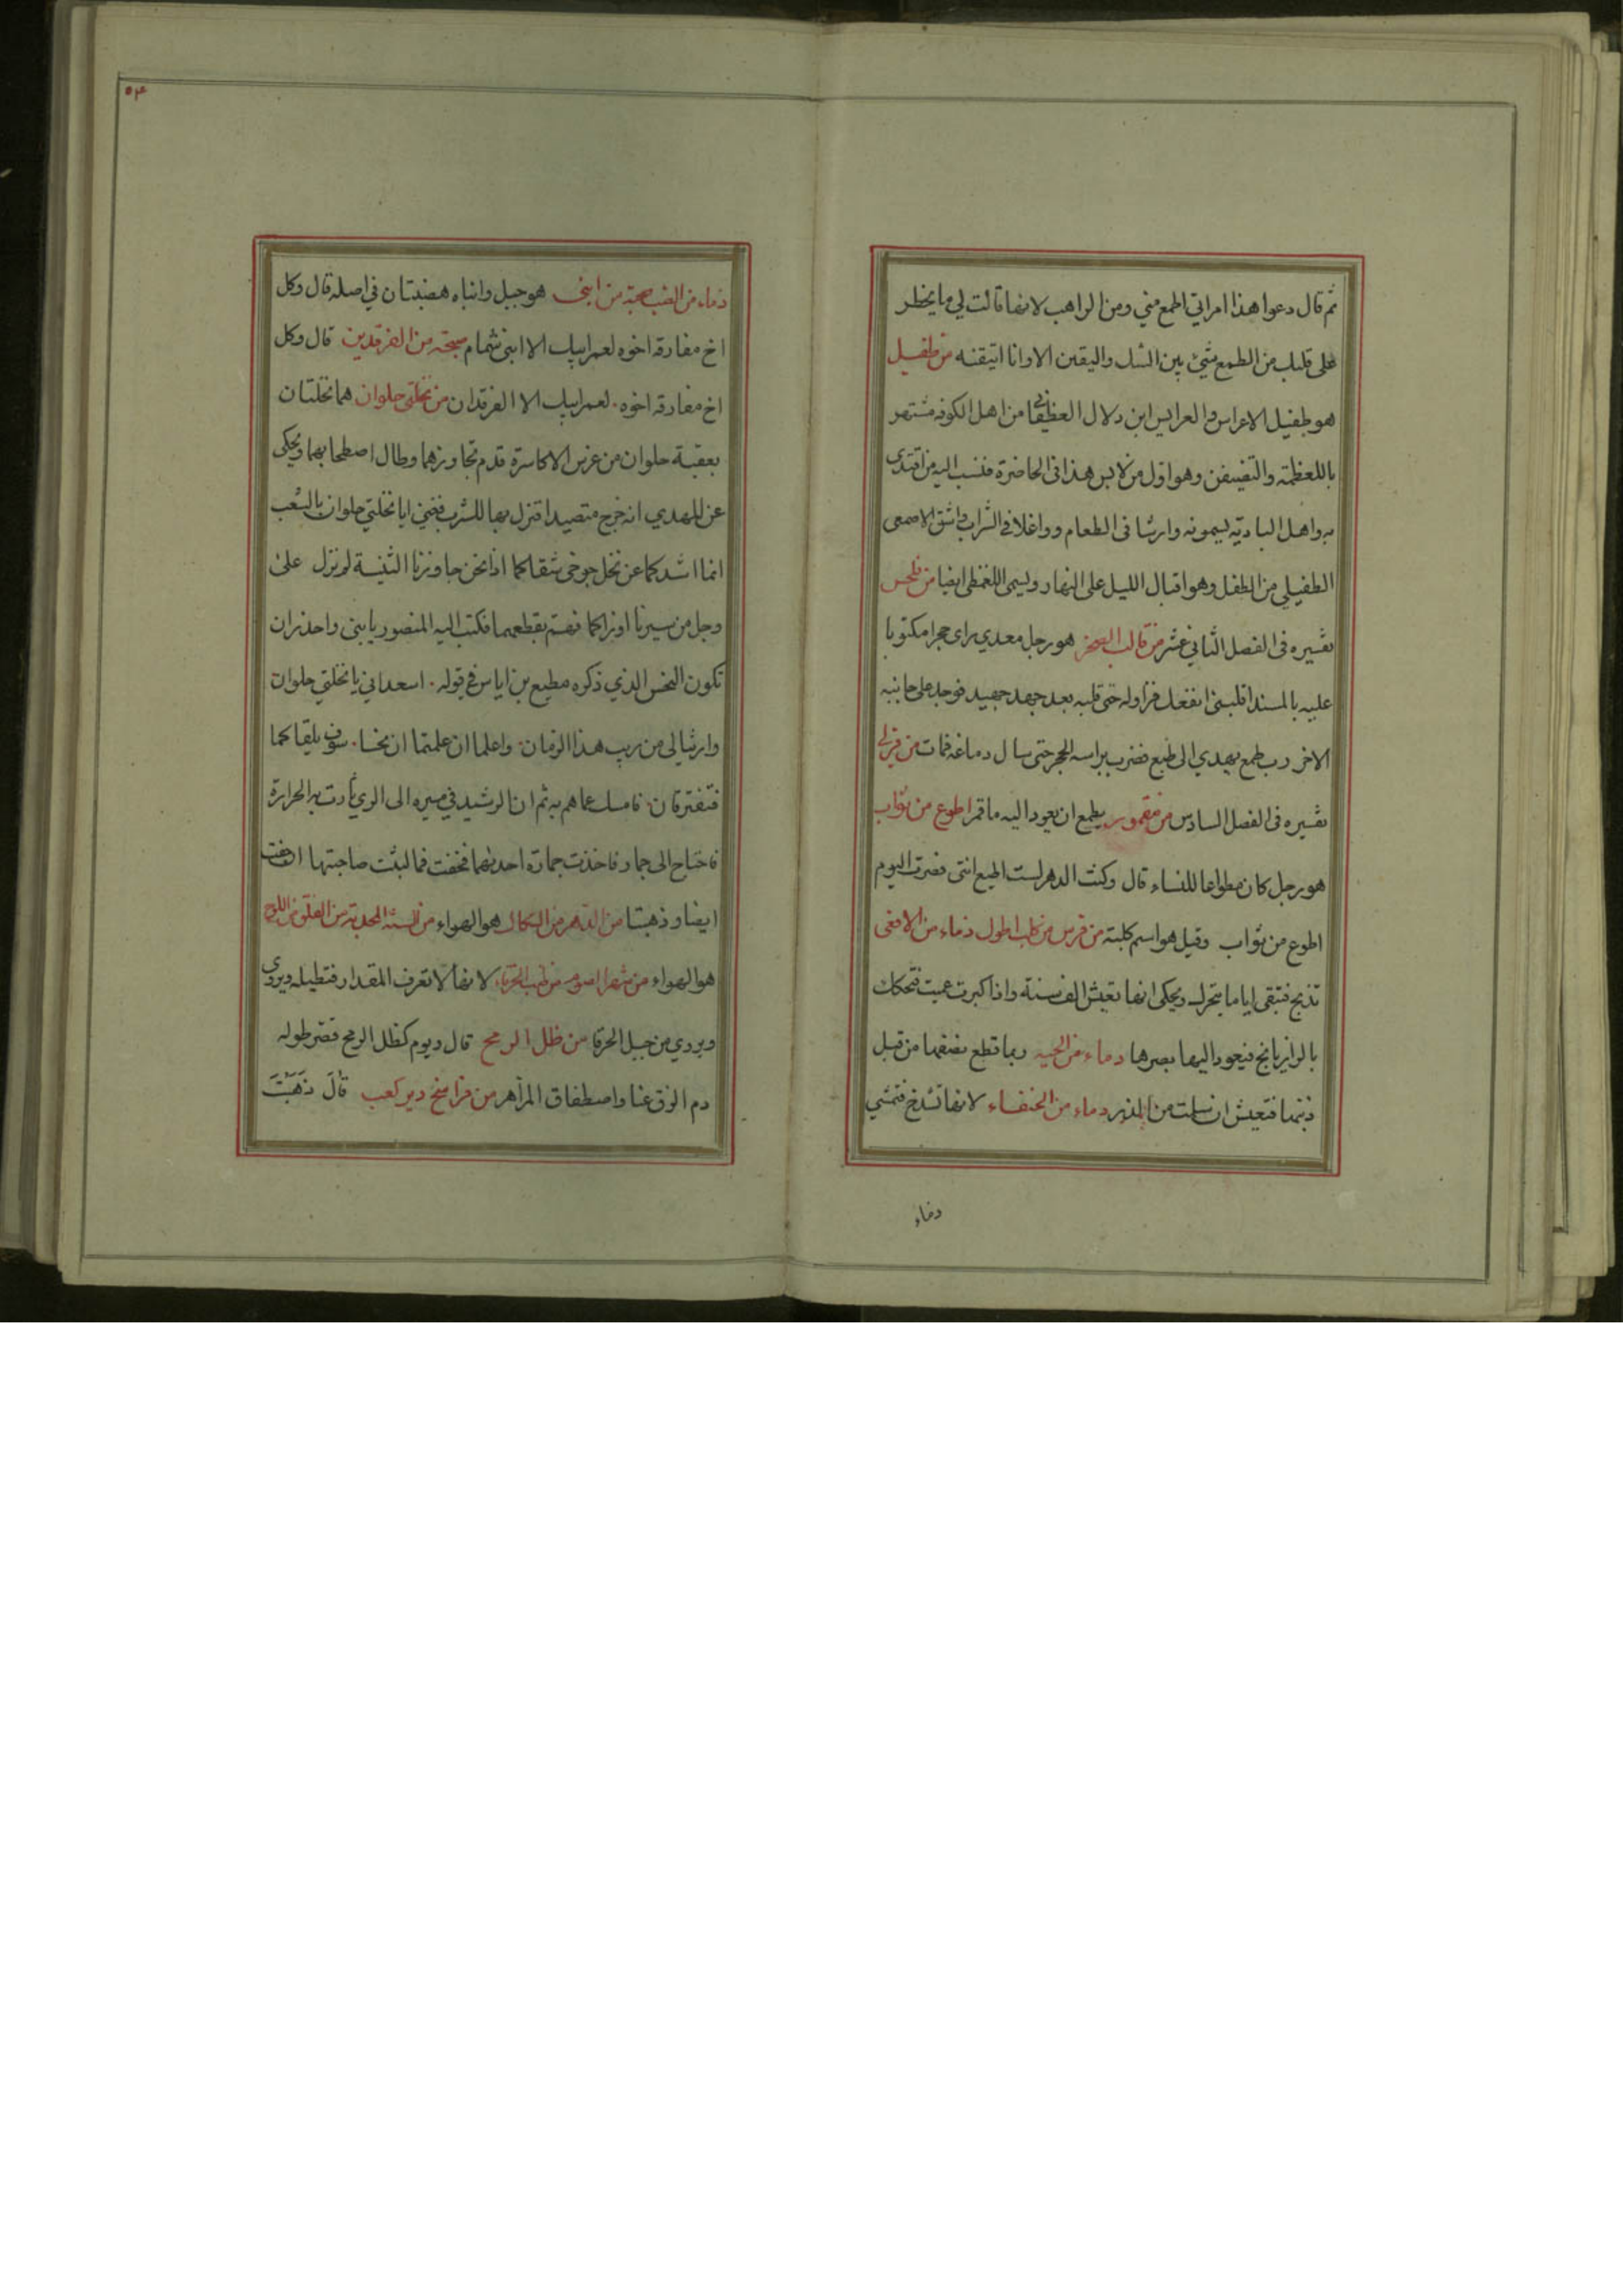 ثم قال دعوا هذا امراتي اطمع مني ومن الراهب لانها قالت لي ما يخطر
على قلبك من الطمع شيئ بين الشك واليقين الا وانا اتيقنه من طفيل
هو طفيل الاعراس والعرايس ابن دلال الغطفاني من اهل الكوفه مشتهر
باللعظمة والتضيفن وهو اول من لابس هذا في الحاضرة فنسب اليه من اقتدى
به واهل البادية يسمونه وارشا في الطعام وواغلا في الشراب واشتق الاصمعي
الطفيلي من الطفل وهو اقبال الليل على النهار ويسمى ايضا من فلحس
تفسيره في الفصل الثاني عشر من قالب الصخر هو رجل معدي راى حجرا مكتوبا
عليه بالمسند اقلبني انفعك فزاوله حتى قلبه بعد جهد جهيد فوجد على جانبه
الاخر رب طمع يهدي الى طبع فضرب براسه الحجر حتى سال دماغه فمات من قرلى
تفسيره في الفصل السادس من مقمور يطمع ان يعود اليه ما قمر اطوع من ثواب
هو رجل كان مطواعا للنساء قال وكنت الدهر لست اطيع انثى فصرت اليوم
اطوع من ثواب وقيل هو اسم كلبته من فرس من كلب اطول ذماء من الافعى
تذبح فتبقى اياما يتحرك ويحكى انها تعيش الف سنة واذا كبرت عميت فتحكك
بالرازيانج فيعود اليها بصرها دماء من الحيه ربما قطع نصفها من قبل
ذنبها فتعيش ان سلمت من الذر دماء من الخنفساء لانها تشدخ فتمشي
دماء
٥٣
ذماء من الضب صحبة من ابني هو جبل وابناه هضبتان في اصله قال وكل
اخ مفارقه اخوه لعمر ابيك الا ابني شمام صحبته من الفرقدين قال وكل
اخ مفارقه اخوه. لعمر ابيك الا الفرقدان من نخلتي حلوان هما نخلتان
بعقبة حلوان من غرس الاكاسرة قدم تجاورهما وطال اصطحابهما ويحكى
عن المهدي انه خرج متصيدا فنزل بها للشرب فغني ايا نخلتي حلوان بالشعب
انما اشدكما عن نخل جوخى شقاكما اذا نحن جاوزنا الثنية لم نزل على
وجل من سيرنا او نراكما فهم بقطعهما فكتب اليه المنصور يا بني واحذر ان
تكون النحس الذي ذكره مطيع بن اياس في قوله. اسعداني يا نخلتي حلوان
وارثيا لي من ريب هذا الزمان. واعلما ان علمتما ان نحسا. سوف يلقاكما
فتفترقان. فامسك عما هم به ثم ان الرشيد في مسيره الى الري ثارت به الحرارة
فاحتاج الى جمار فاخذت جمارة احديهما فجفت فما لبثت صاحبتها ان جفت
ايضا وذهبتا من الدهر من السكاك هو الهواء من السنة المجدبة من الفلق من اللوح
هو الهواء من شهر الصوم من طنب الخرقاء لانها لا تعرف المقدار فتطيله ويروى
ويروي من حبل الخرقا من ظل الرمح قال ويوم كظل الرمح قصر طوله
دم الزق عنا واصطفاق المزاهر من فراسخ دير كعب قَالَ ذَهَبْتَ